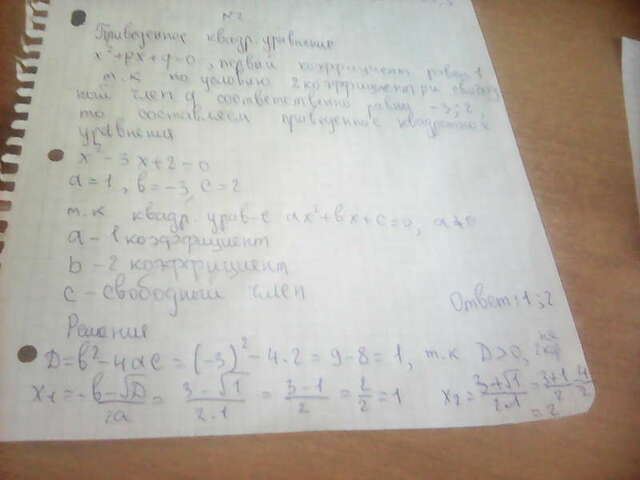 N 2
Приведенное квадр. уравнение
x²+px+q=0, первый коэффициент равен 1,
т.к по условию 2 коэффициент p и свобод
ный член q соответственно равны -3; 2,
то составляем приведенное квадратное
уравнения
x²-3x+2=0
a=1, b=-3, c=2
т.к квадр. урав-е ax²+bx+c=0, a≠0
a - 1 коэффициент
b - 2 коэффициент
c - свободный член
Ответ: 1; 2
Решения
D=b²-4ac=(-3)²-4·2=9-8=1, т.к D>0,
x₁=-b-√D/2a=3-√1/2·1=3-1/2=2/2=1 x₂=3+√1/2·1=3+1/2=4/2
=2